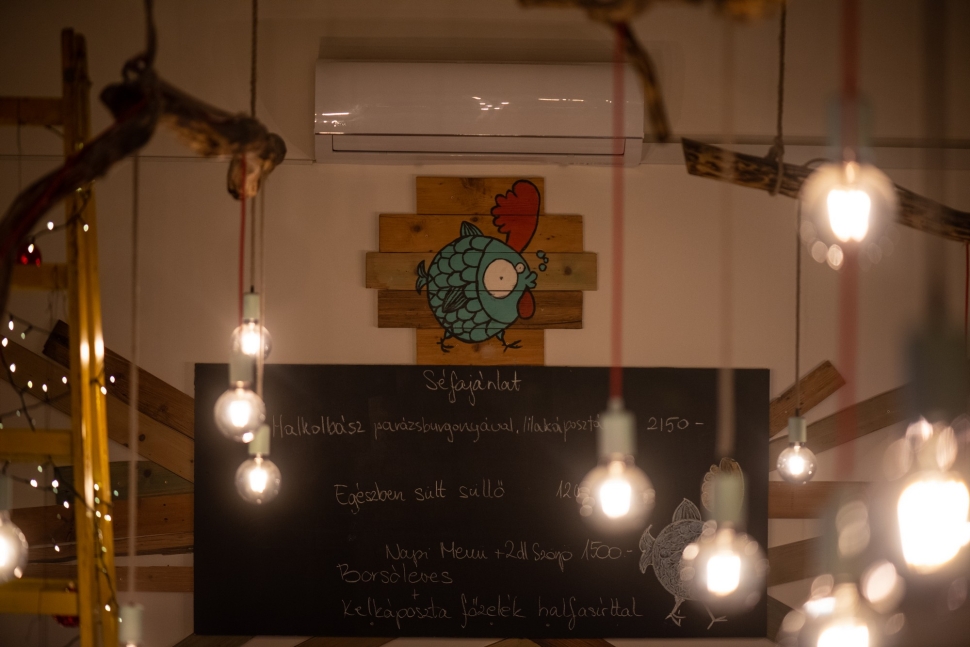 Séfajánlat
Halkolbász parázsburgonyával, lilakáposztá 2150 -
Egészben sült süllő 12
Napi Menu + 2dl Szörp 1500 -
Borsóleves
+
Kelkáposzta főzelék halfasírttal